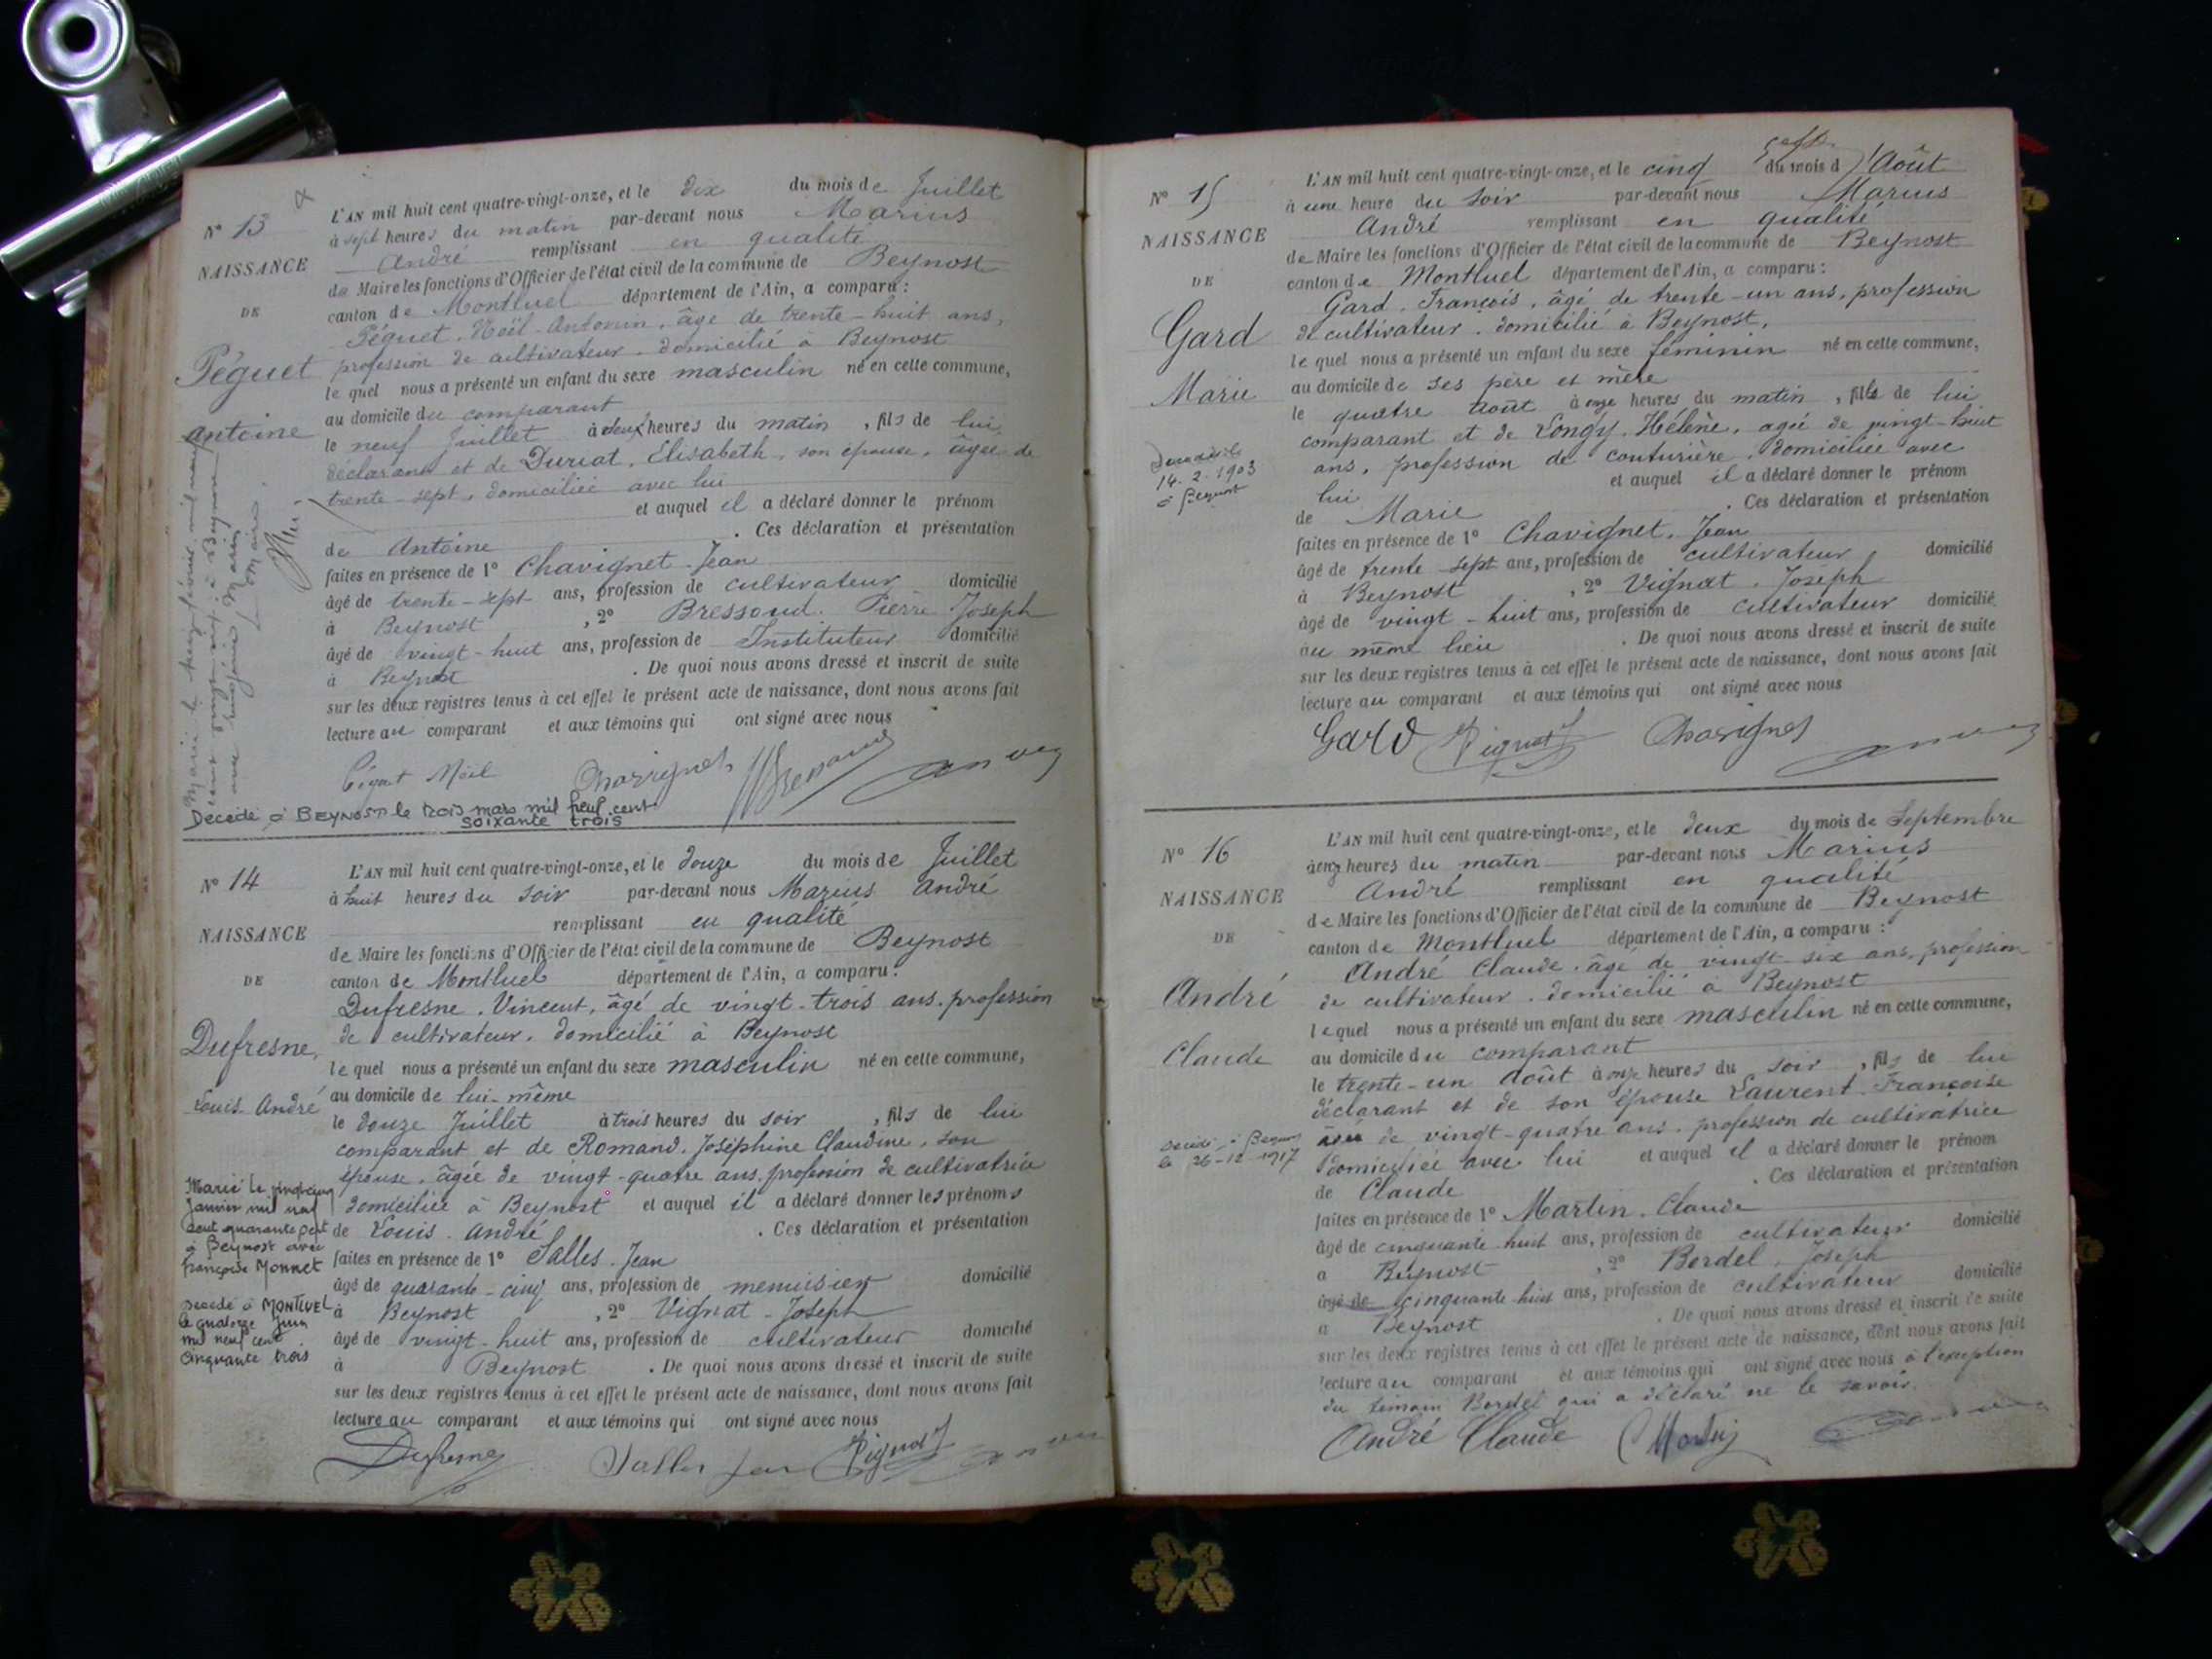 N° 13
NAISSANCE
DE
Péguet
Antoine
L'AN mil huit cent quatre-vingt-onze, et le dix du mois de Juillet
à sept heures du matin par-devant nous Marius
André remplissant en qualité
de Maire les fonctions d'Officier de l'état civil de la commune de Beynost
canton de Montluel département de l'Ain, a comparu :
Péguet, Noël-Antonin, âgé de trente-huit ans,
profession de cultivateur, domicilié à Beynost
lequel nous a présenté un enfant du sexe masculin né en cette commune,
au domicile du comparant
le neuf Juillet à deux heures du matin, fils de lui
déclarant et de Duriat, Elisabeth, son épouse, âgée de
trente-sept, domiciliée avec lui
et auquel il a déclaré donner le prénom
de Antoine. Ces déclaration et présentation
faites en présence de 1° Chavignet Jean
âgé de trente-sept ans, profession de cultivateur domicilié
à Beynost, 2° Bressoud, Pierre Joseph
âgé de vingt-huit ans, profession de Instituteur domicilié
à Beynost. De quoi nous avons dressé et inscrit de suite
sur les deux registres tenus à cet effet le présent acte de naissance, dont nous avons fait
lecture au comparant et aux témoins qui ont signé avec nous
Péguet Noël Chavignet
Décédé à BEYNOST le trois mars mil neuf cent
soixante trois
N° 14
NAISSANCE
DE
Dufresne,
Louis André
Marié le vingt cinq
Janvier mil neuf
cent quarante sept
à Beynost avec
Françoise Monnet
Décédé à MONTLUEL
le quatorze Juin
mil neuf cent
cinquante trois
L'AN mil huit cent quatre-vingt-onze, et le douze du mois de Juillet
à huit heures du soir par-devant nous Marius André
remplissant en qualité
de Maire les fonctions d'Officier de l'état civil de la commune de Beynost
canton de Montluel département de l'Ain, a comparu :
Dufresne, Vincent, âgé de vingt-trois ans, profession
de cultivateur, domicilié à Beynost
lequel nous a présenté un enfant du sexe masculin né en cette commune,
au domicile de lui-même
le douze Juillet à trois heures du soir, fils de lui
comparant et de Romand, Joséphine Claudine, son
épouse, âgée de vingt-quatre ans, profession de cultivatrice
domiciliée à Beynost et auquel il a déclaré donner les prénoms
de Louis André. Ces déclaration et présentation
faites en présence de 1° Salles, Jean
âgé de quarante-cinq ans, profession de menuisier domicilié
à Beynost, 2° Vignat Joseph
âgé de vingt-huit ans, profession de cultivateur domicilié
à Beynost. De quoi nous avons dressé et inscrit de suite
sur les deux registres tenus à cet effet le présent acte de naissance, dont nous avons fait
lecture au comparant et aux témoins qui ont signé avec nous
Dufresne Salles Jean Vignat
N° 15
NAISSANCE
DE
Gard
Marie
décédée
14-2-1903
à Beynost
L'AN mil huit cent quatre-vingt-onze, et le cinq du mois d'Août
à une heure du soir par-devant nous Marius
André remplissant en qualité
de Maire les fonctions d'Officier de l'état civil de la commune de Beynost
canton de Montluel département de l'Ain, a comparu :
Gard, François, âgé de trente-un ans, profession
de cultivateur, domicilié à Beynost,
lequel nous a présenté un enfant du sexe féminin né en cette commune,
au domicile de ses père et mère
le quatre août à onze heures du matin, fille de lui
comparant et de Longy, Hélène, agée de vingt-huit
ans, profession de couturière, domiciliée avec
lui et auquel il a déclaré donner le prénom
de Marie. Ces déclaration et présentation
faites en présence de 1° Chavignet, Jean
âgé de trente-sept ans, profession de cultivateur, domicilié
à Beynost, 2° Vignat, Joseph
âgé de vingt-huit ans, profession de cultivateur domicilié
au même lieu. De quoi nous avons dressé et inscrit de suite
sur les deux registres tenus à cet effet le présent acte de naissance, dont nous avons fait
lecture au comparant et aux témoins qui ont signé avec nous
Gard Vignat Chavignet
N° 16
NAISSANCE
DE
André
Claude
décédé à Beynost
le 26-12-1917
L'AN mil huit cent quatre-vingt-onze, et le deux du mois de Septembre
heures du matin par-devant nous Marius
André remplissant en qualité
de Maire les fonctions d'Officier de l'état civil de la commune de Beynost
canton de Montluel département de l'Ain, a comparu :
André Claude, âgé de vingt-six ans, profession
de cultivateur, domicilié à Beynost
lequel nous a présenté un enfant du sexe masculin né en cette commune,
au domicile du comparant
le trente-un août à onze heures du soir, fils de lui
déclarant et de son épouse Laurent Françoise
âgée de vingt-quatre ans, profession de cultivatrice
domiciliée avec lui et auquel il a déclaré donner le prénom
de Claude. Ces déclaration et présentation
faites en présence de 1° Martin, Claude
âgé de cinquante-huit ans, profession de cultivateur domicilié
à Beynost, 2° Bordel, Joseph
âgé de cinquante-huit ans, profession de cultivateur domicilié
à Beynost. De quoi nous avons dressé et inscrit de suite
sur les deux registres tenus à cet effet le présent acte de naissance, dont nous avons fait
lecture au comparant et aux témoins qui ont signé avec nous à l'exception
du témoin Bordel qui a déclaré ne le savoir.
André Claude Martin